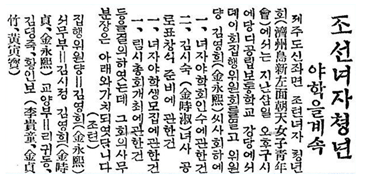 조선녀자청년
야학을계속
제주도신좌면 조텬녀자 청년
회(濟州島新左面朝天女子靑年
會)에서는 지난삼일 오후구시
에당디공립보통학교 강당에서
뎨이회집행위원회를열고 위원
댱 김영희(金永熙)씨사회하에
一、녀자야학회인수에관한건
二、김시숙(金時淑)녀사 공
로표창식 준비에관한건
一、녀자야학생모집에관한건
一、림시총회개최에관한건
등을결의하엿는데 그회의사무
분장은 아래와가치되엿답니다
(조텬)
집행위원댱=김영희(金永熙)
서무부=김시정 김영희(金時
貞、金永熙) 교양부=리귀동、
김뎡죽、황인보(李貴童、金貞
竹、黃寅寶)